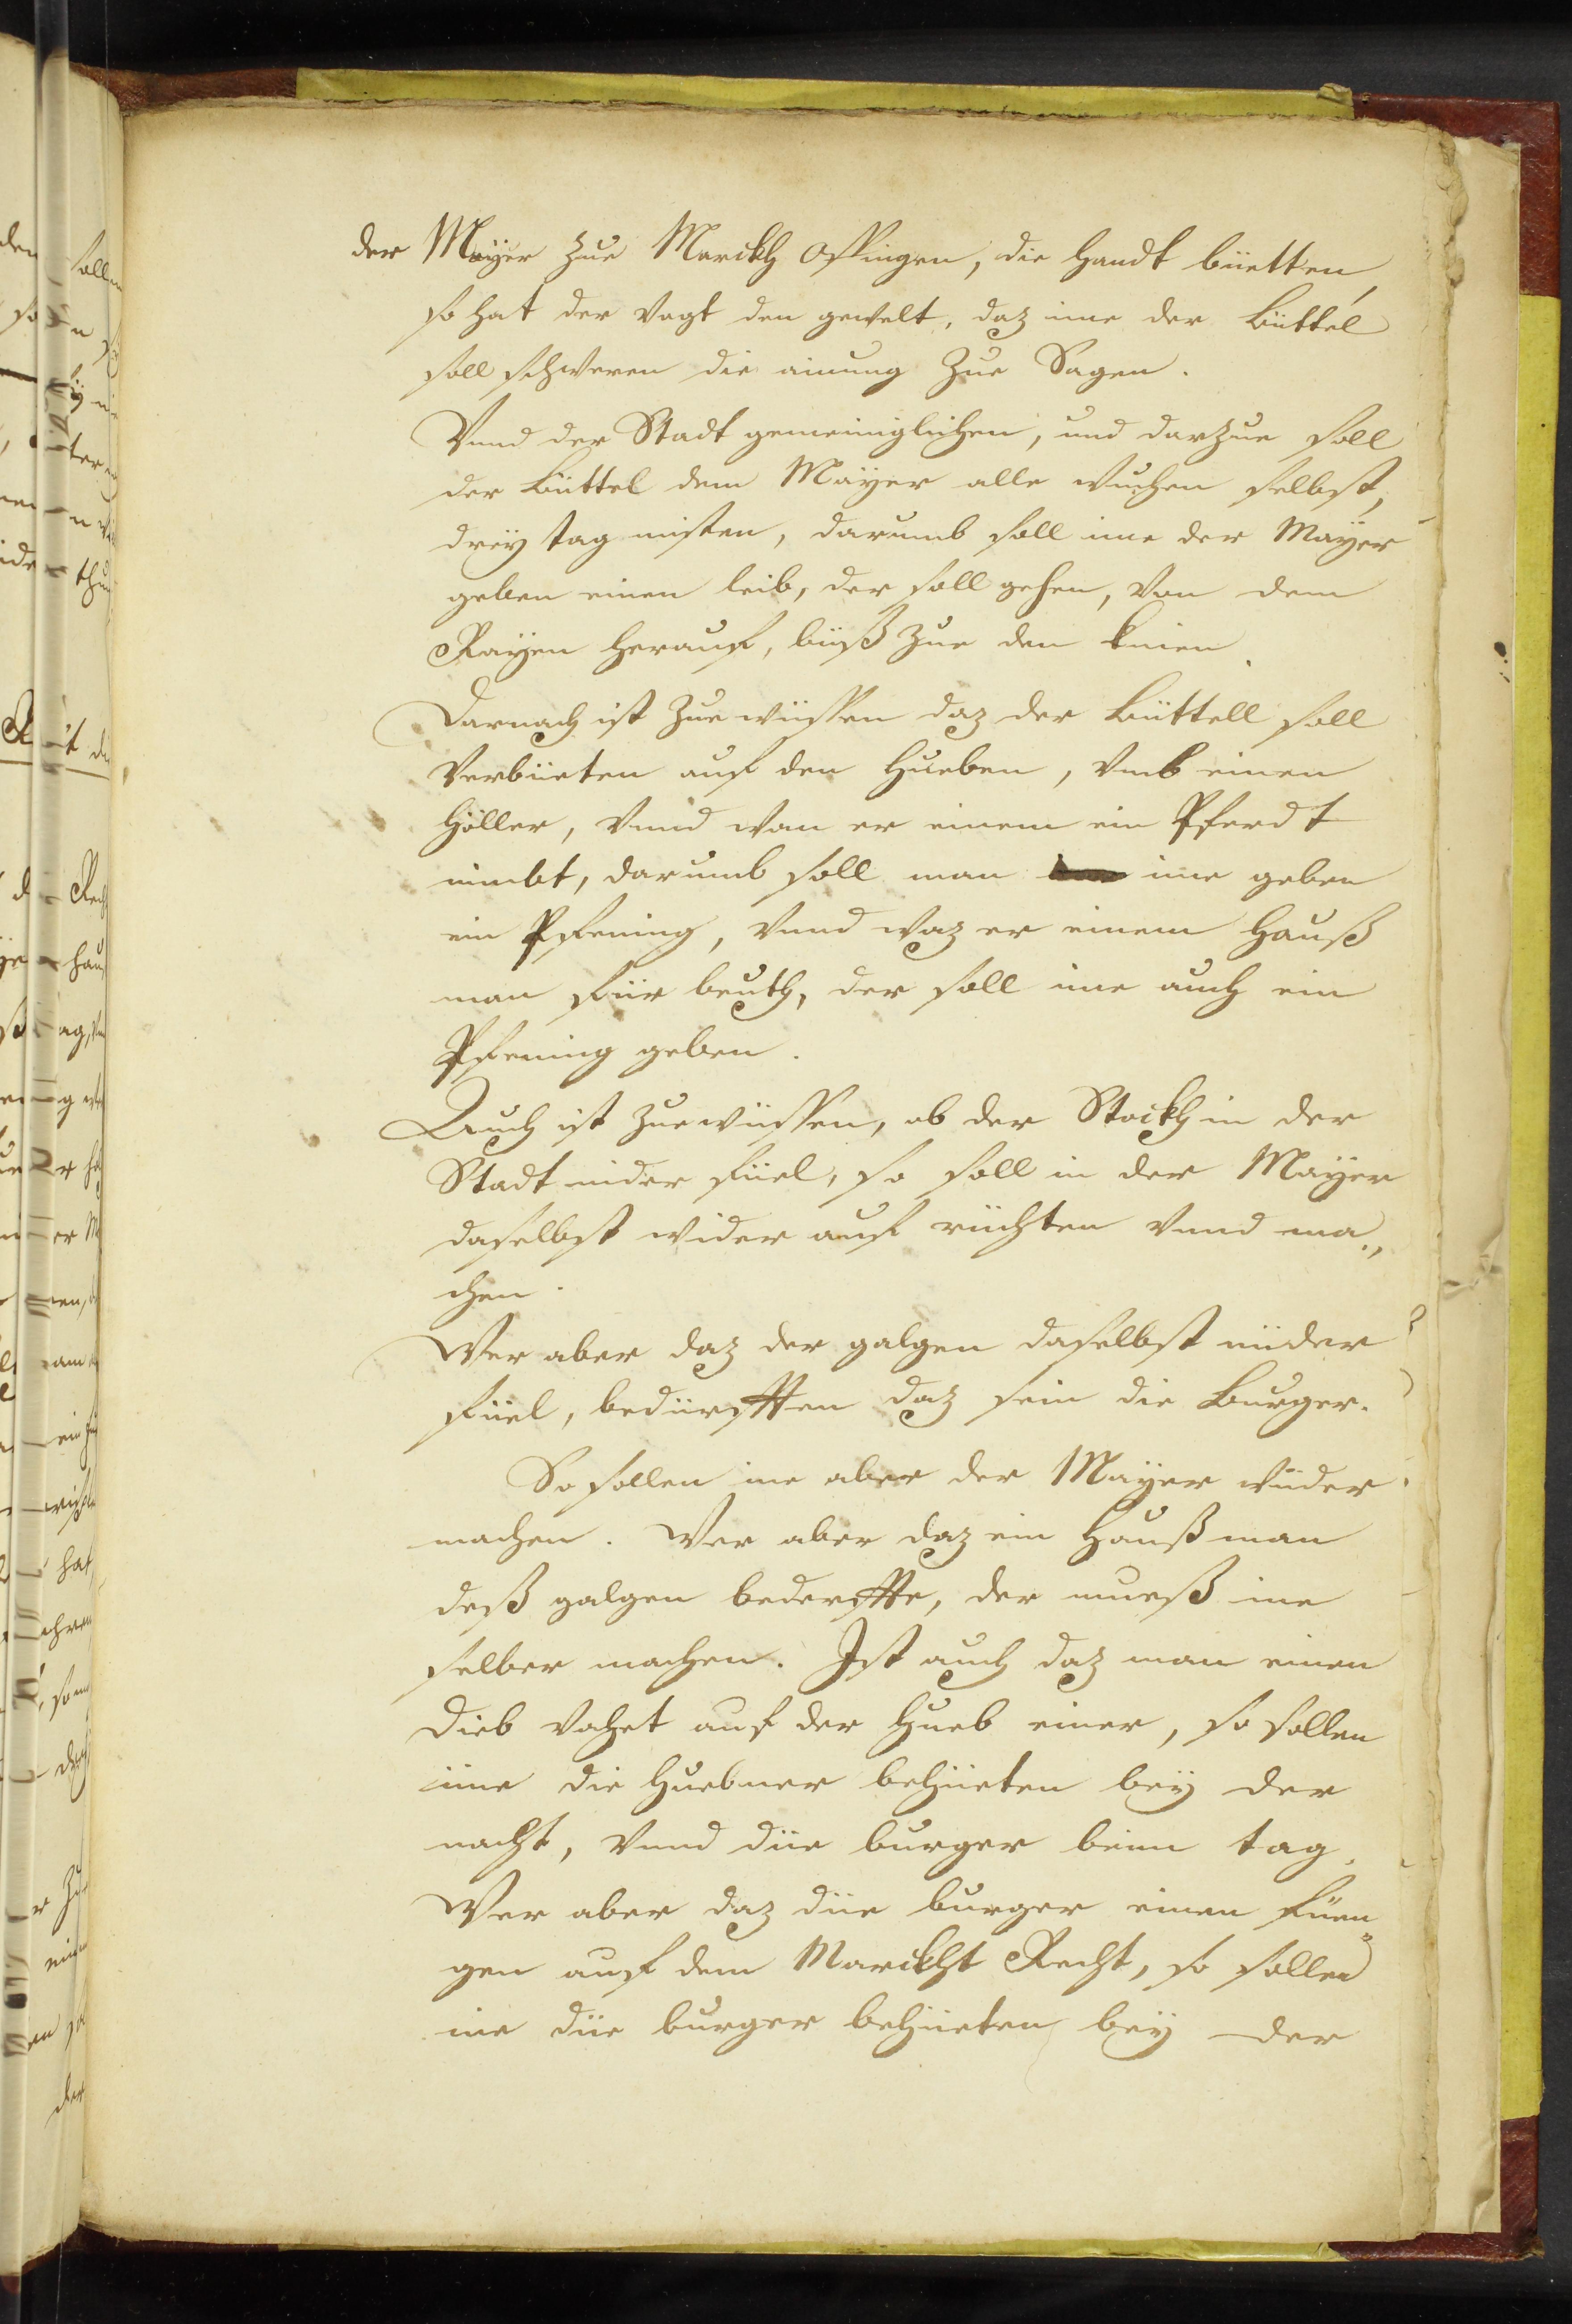 der Mayer zue Marckh Offingen, die handt büetten,
so hat der Vogt den gewelt, daz ime der Büttel
soll schweren die ainung zue Sagen.
Vnnd der Stadt gemeiniglichen, und darzue soll
der Büttel dem Mayer alle wuchen selbst,
dreÿ tag misten, darumb soll ime der Mayer
geben einen leib, der soll gehen, von dem
Rayen herauf, büß zue den knien.
Darnach ist zue wüssen daz der Büttell soll
Verbüeten auf den Hueben, vmb einen
Höller, Vnnd wan er einem ein Pferdt
nimbt, darumb soll man ime geben
ein Pfening, Vnnd waz er einem Hauß
man für beuth, der soll ime auch ein
Pfening geben.
Auch ist zue wüssen, ob der Stockh in der
Stadt nider füel, so soll in der Mayer
daselbst wider auf rüchten vnnd ma„
chen.
Wer aber daz der galgen daselbst nüder
füel, bedürfften daz sein die Burger.
So sollen ine aber der Mayer wüder
machen. Wer aber daz ein Haußman
deß galgen bedorffte, der mueß ine
selber machen. Ist auch daz man einen
Dieb vahet auf der Hueb einer, so sollen
ime die Huebner behüeten beÿ der
nacht, Vnnd düe burger beim tag.
Wer aber daz düe burger einen füen„
gen auf dem Marckht Recht, so sollen
ine düe burger behüeten beÿ der